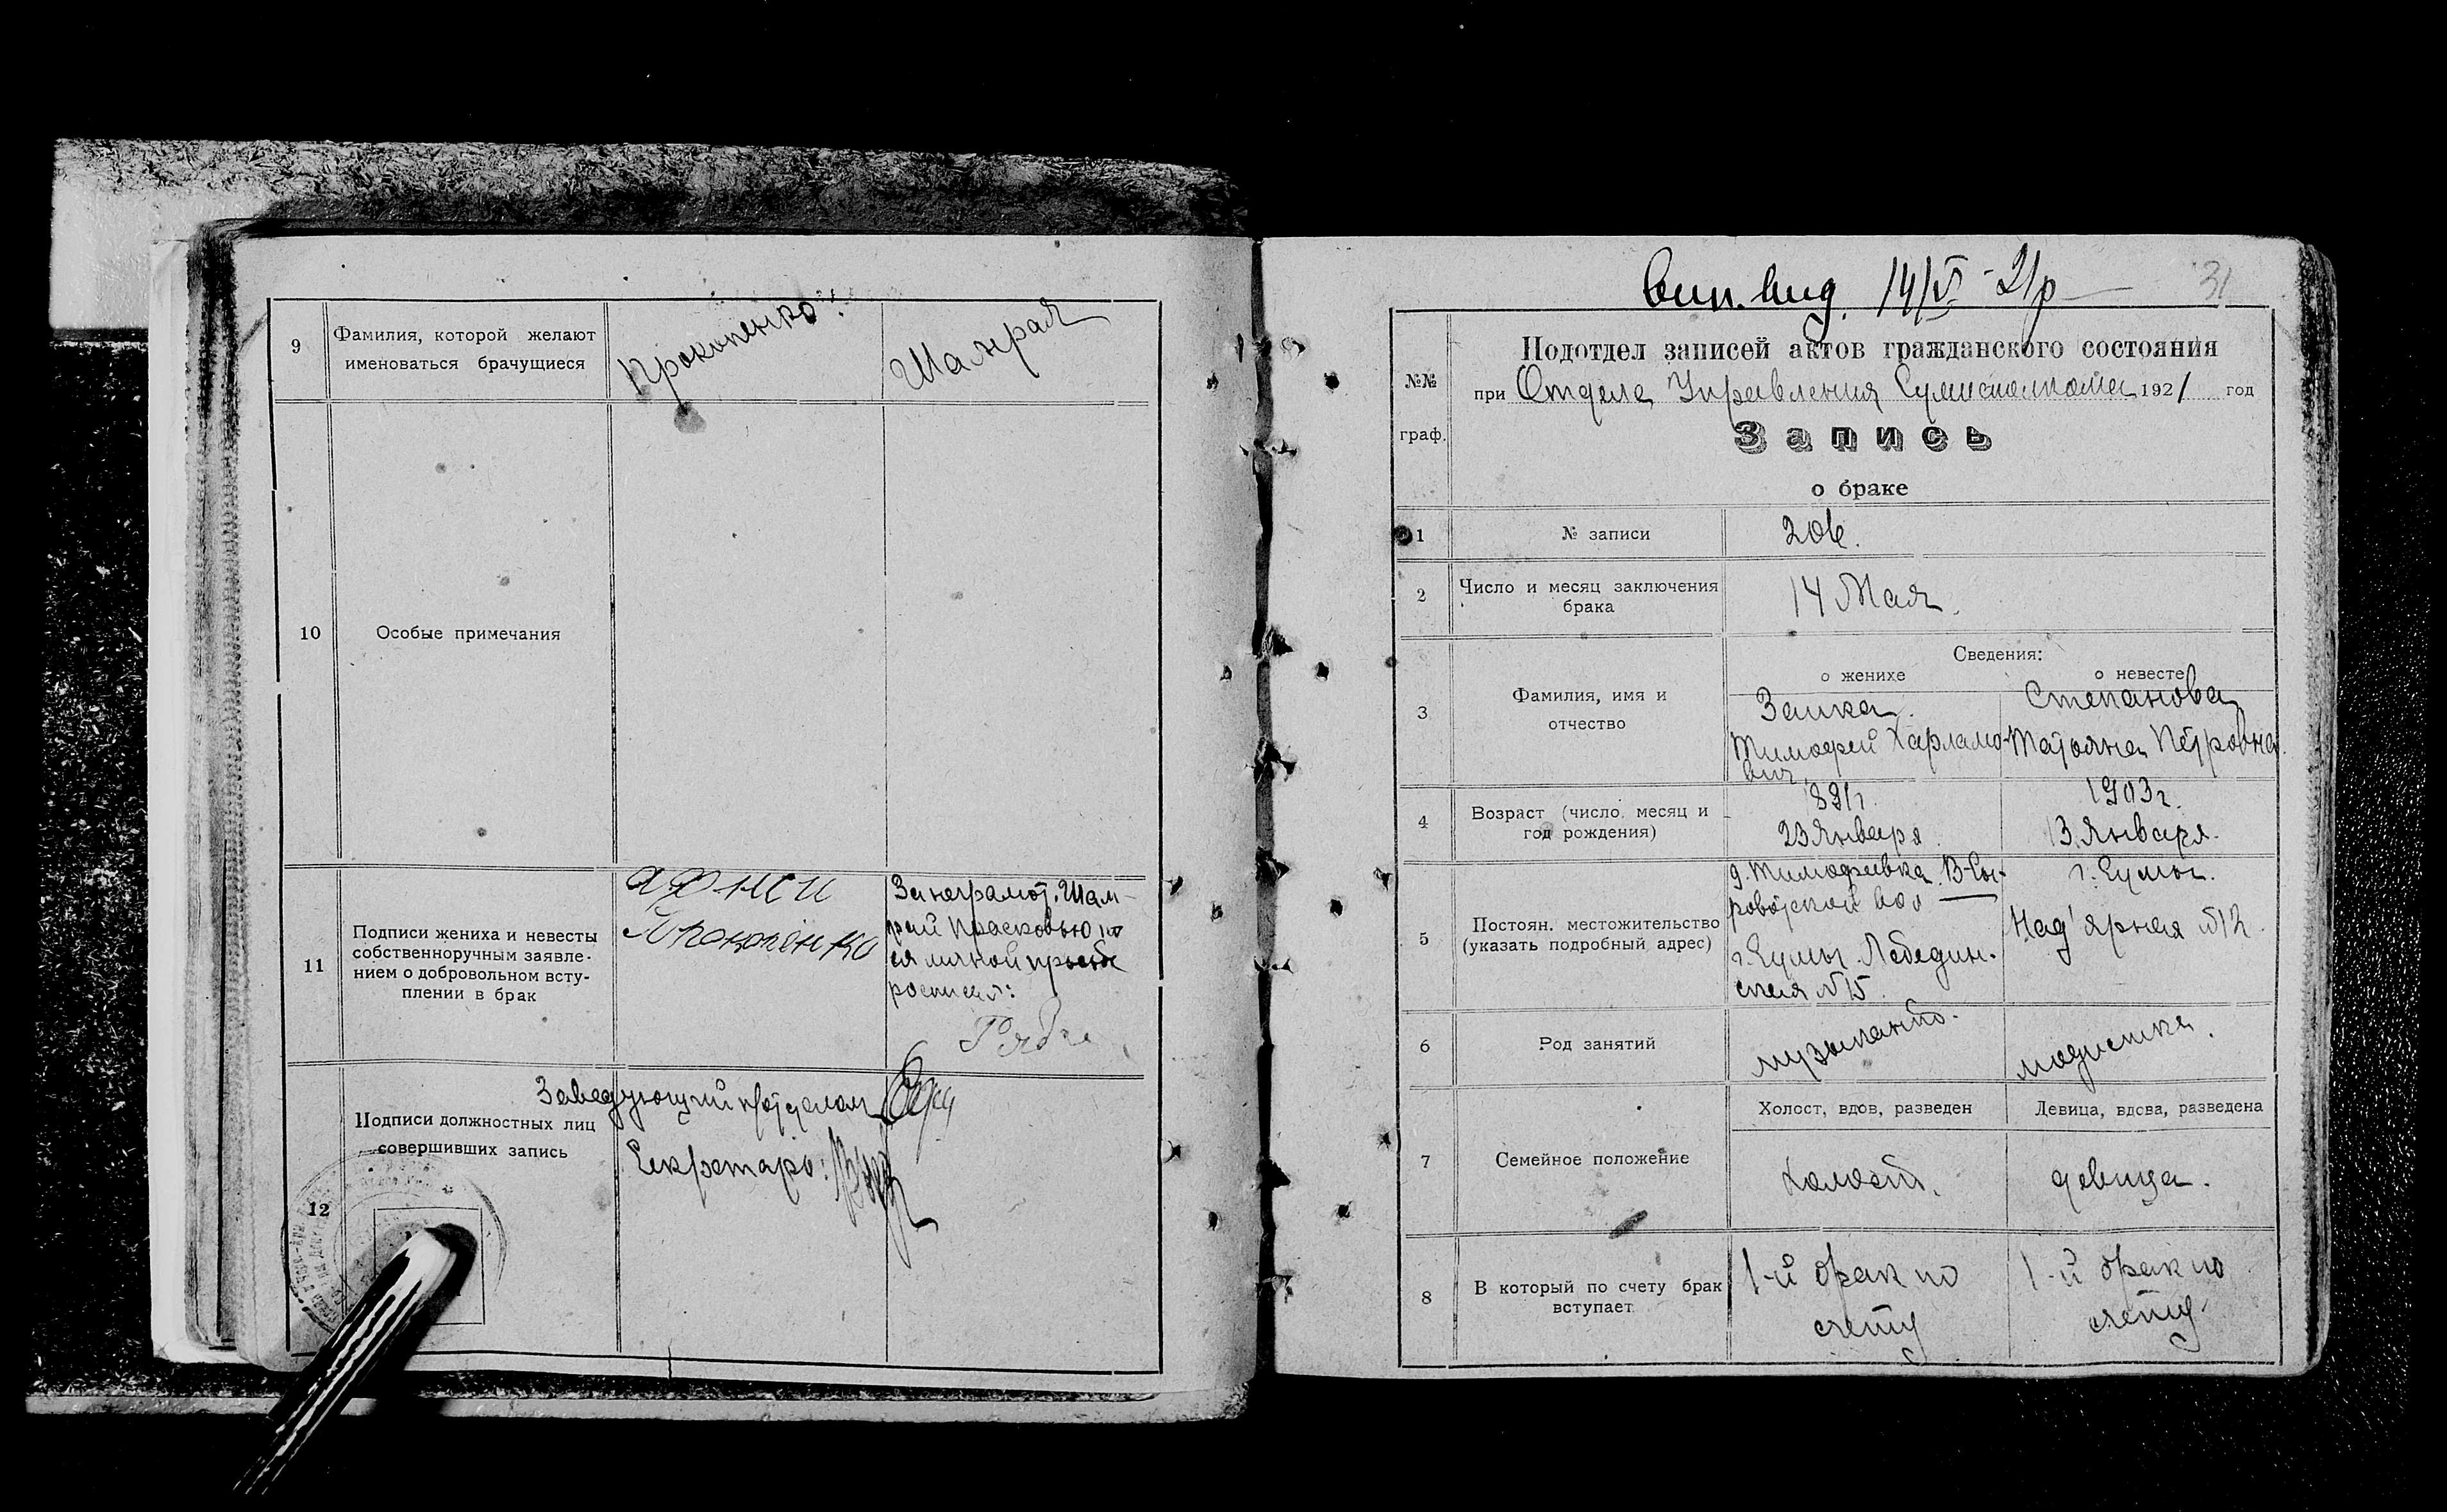 9
Фамилия, которой желают
именоваться брачущиеся
Прокопенко
Шамрай
10
Особые примечания
11
Подписи жениха и невесты
собственноручным заявле-
нием о добровольном всту-
плении в брак
Прокопенко
За неграмот. Шам-
рай Прасковью по
ея личной просьбе
росписал:
12
Подписи должностных лиц
совершивших запись
Заведующий п/отделом
Секретарь:
Вип. вид. 14/V-21р
31
№№
граф.
Подотдел записей актов гражданского состояния
при Отделе Управления Сумисполкома 1921 год
Запись
о браке
1
№ записи
206.
2
Число и месяц заключения
брака
14 Мая.
Сведения:
о женихе
о невесте
3
Фамилия, имя и
отчество
Заика
Тимофей Харламо-
вич
Степанова
Татьяна Петровна.
4
Возраст (число, месяц и
год рождения)
1891г.
23 Января.
1903г.
13 Января.
5
Постоян. местожительство
(указать подробный адрес)
д. Тимофеевка В-Сы-
роватской вол
г. Сумы. Лебедин-
ская №15.
г. Сумы.
Над'ярная №12.
6
Род занятий
музыкант.
модистка.
7
Семейное положение
Холост, вдов, разведен
Девица, вдова, разведена
Холост.
девица.
8
В который по счету брак
вступает
1-й брак по
счету
1-й брак по
счету